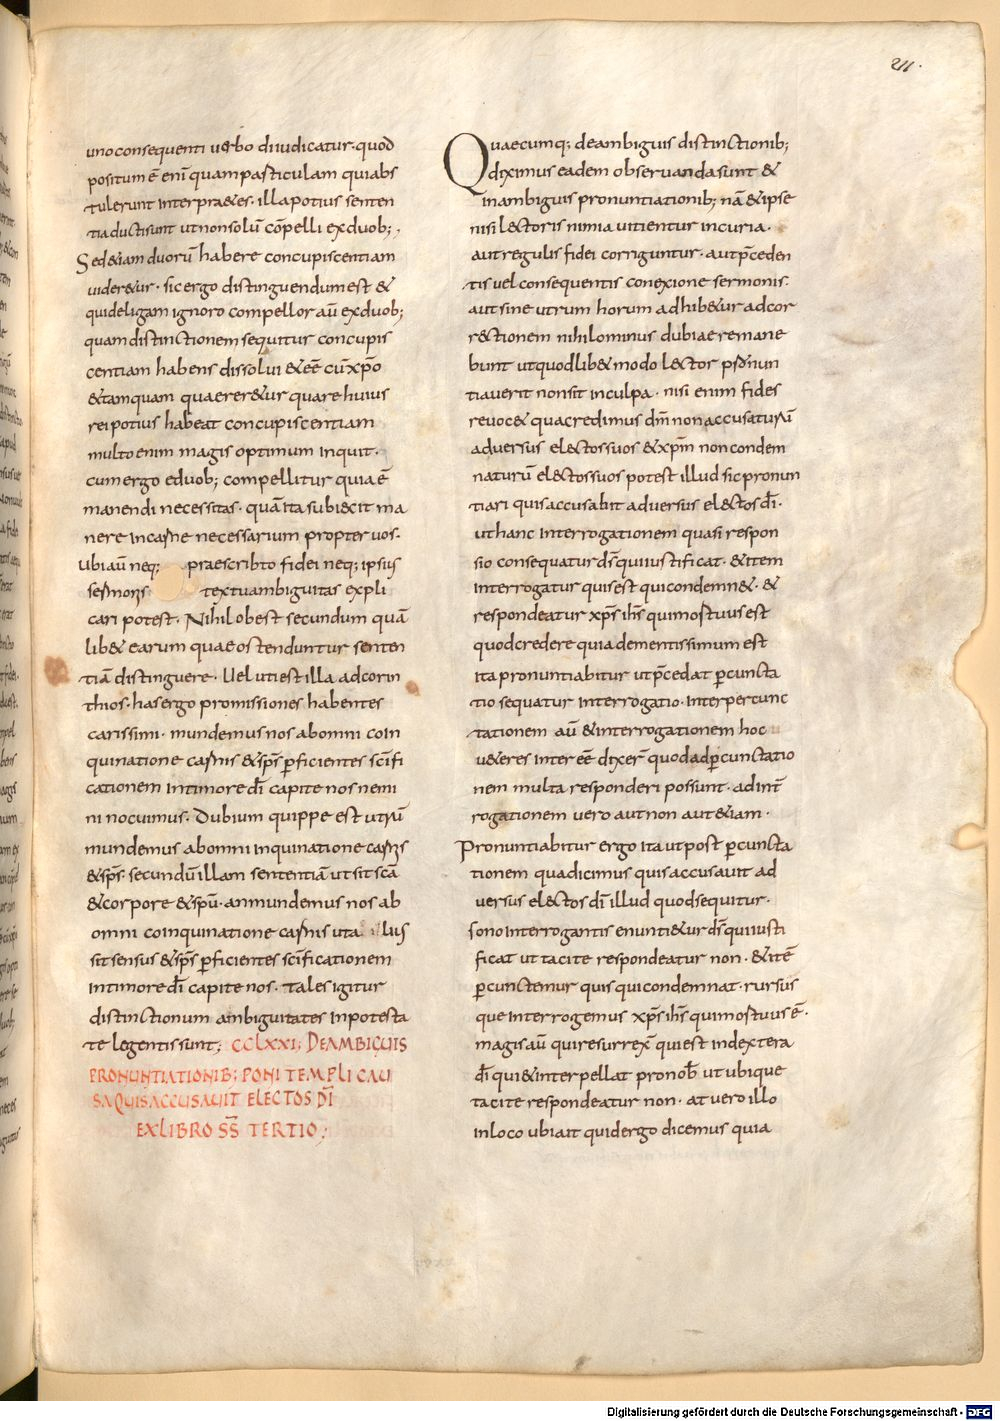 211.
uno consequenti verbo diiudicatur· quod
positum ē eni quam particulam qui abs
tulerunt interpraetes· illa potius senten
tia ducti sunt ut non solū cōpelli ex duob;·
Sed etiam duorū habere concupiscentiam
videretur· sic ergo distinguendum est et
quid eligam ignoro compellor aū ex duob;
quam distinctionem sequitur concupis
centiam habens dissolui et eē cū xpō
et tamquam quaereretur quare huius
rei potius habeat concupiscentiam
multo enim magis optimum inquit·
cum ergo e duob; compellitur quia ē
manendi necessitas· quā ita subiecit ma
nere in carne necessarium propter vos·
Ubi aū neq; praescribto fidei neq; ipsius
sermonis textu ambiguitas expli
cari potest· Nihil obest secundum quā
libet earum quae ostenduntur senten
tiā distinguere· Vel uti est illa ad corin
thios· has ergo promissiones habentes
carissimi· mundemus nos ab omni coin
quinatione carnis et sp̄s p̄ficientes sc̄ifi
cationem in timore dī capite nos nemi
ni nocuimus· Dubium quippe est utrū
mundemus ab omni inquinatione carnis
et sp̄s· secundū illam sententiā ut sit scā
et corpore et spū· an mundemus nos ab
omni coinquinatione carnis ut a luis
sit sensus et sp̄s p̄ficientes sc̄ificationem
in timore dī capite nos· Tales igitur
distinctionum ambiguitates in potesta
te legentis sunt; CCLXXI; DE AMBIGUIS
PRONUNTIATIONIB; PONI TEMPLI CAU
SA QUIS ACCUSAUIT ELECTOS DĪ
EX LIBRO SS TERTIO;
Quaecumq; de ambiguis distinctionib;
diximus eadem observanda sunt et
in ambiguis pronuntiationib; nā et ipse
nisi lectoris nimia vitientur incuria·
aut regulis fidei corriguntur· aut p̄ceden
tis vel consequentis conexione sermonis·
aut si neutrum horum adhibetur ad cor
rectionem nihilominus dubiae remane
bunt ut quodlibet modo lector pronun
tiaverit non sit in culpa· nisi enim fides
revocet qua credimus dm̄ non accusaturū
adversus electos suos et xpm̄ non condem
naturū electos suos potest illud sic pronun
tiari quis accusabit adversus electos dī·
ut hanc interrogationem quasi respon
sio consequatur ds̄ qui iustificat· et item
interrogatur quis est qui condemnet· et
respondeatur xps̄ ihs̄ qui mortuus est
quod credere quia dementissimum est
ita pronuntiabitur ut p̄cedat p̄cuncta
tio sequatur interrogatio· inter percunc
tationem aū et interrogationem hoc
veteres interēē dixer̄ quod ad p̄cunctatio
nem multa responderi possunt· ad int̄
rogationem vero aut non aut etiam·
Pronuntiabitur ergo ita ut post p̄cuncta
tionem qua dicimus quis accusavit ad
versus electos dī illud quod sequitur·
sono interrogantis enuntietur ds̄ qui iusti
ficat ut tacite respondeatur non· et itē
p̄cunctemur quis qui condemnat· rursus
que interrogemus xps̄ ihs̄ qui mortuus ē·
magis aū qui resurrex̄ qui est in dextera
dī qui et interpellat pro nob̄ ut ubique
tacite respondeatur non· at vero illo
in loco ubi ait quid ergo dicemus quia
Digitalisierung gefördert durch die Deutsche Forschungsgemeinschaft - DFG